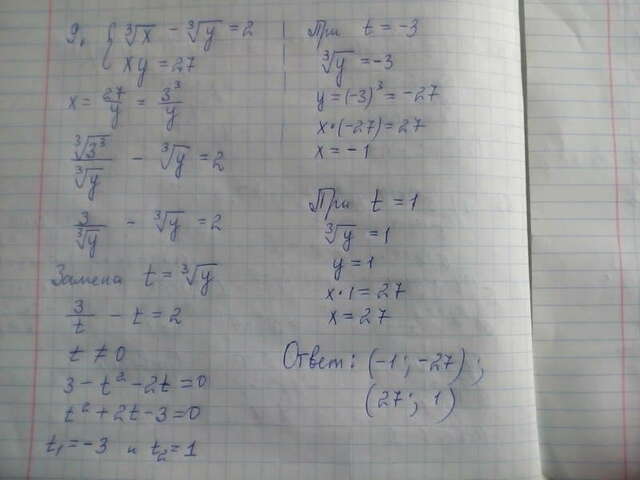 9. { ∛x - ∛y = 2
xy = 27
x = 27/y = 3³/y
∛3³/∛y - ∛y = 2
3/∛y - ∛y = 2
Замена t = ∛y
3/t - t = 2
t ≠ 0
3 - t² - 2t = 0
t² + 2t - 3 = 0
t₁ = -3 и t₂ = 1
При t = -3
∛y = -3
y = (-3)³ = -27
x·(-27) = 27
x = -1
При t = 1
∛y = 1
y = 1
x·1 = 27
x = 27
Ответ: (-1; -27);
(27; 1)